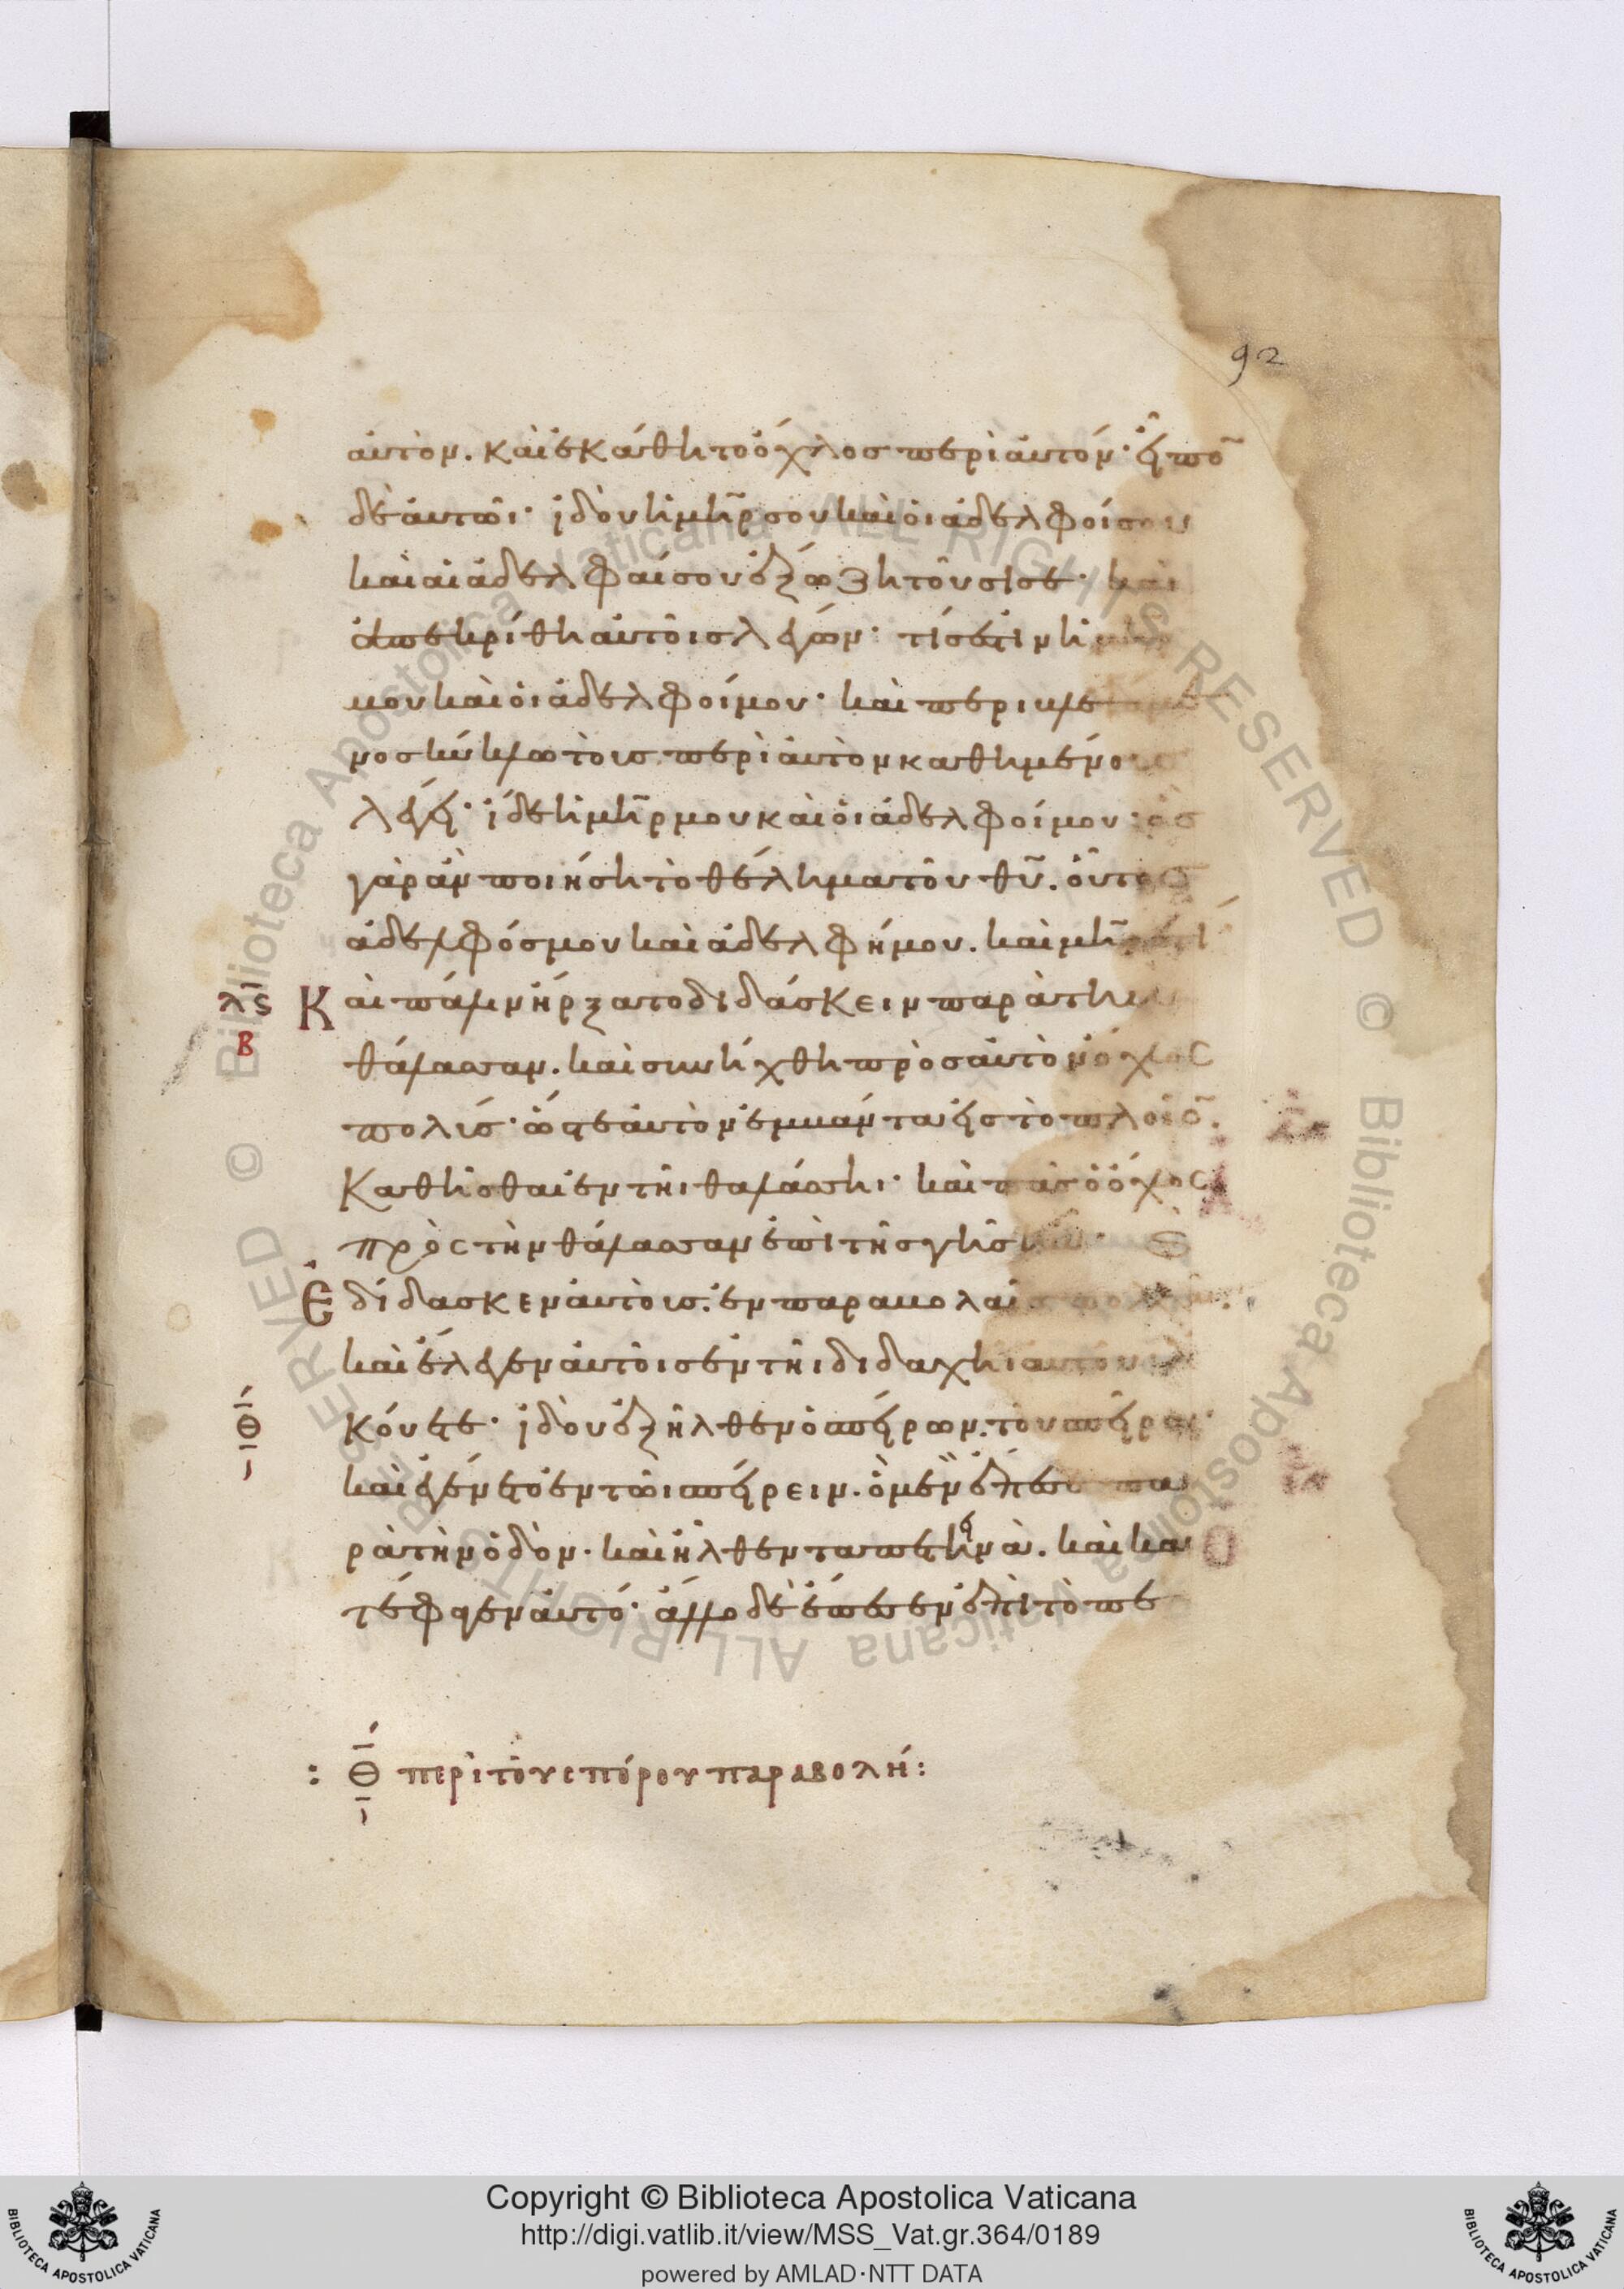 92
αὐτὸν. καὶ ἐκάθητο ὄχλος περὶ αὐτόν· εἶπο̅
δὲ αὐτῶι· ἰδοὺ ἡ μη̅ρ σου καὶ οἱ ἀδελφοί σου
καὶ αἱ ἀδελφαί σου ἔξω ζητοῦσί σε· καὶ
ἀπεκρίθη αὐτοῖς λέγων· τίς ἐστιν ἡ
μου καὶ οἱ ἀδελφοί μου· καὶ περιβλε
νος κύκλω τοὺς περὶ αὐτὸν καθημένους
λέγει· ἴδε ἡ μη̅ρ μου καὶ οἱ ἀδελφοί μου· ὃς
γὰρ ἂν ποιήση τὸ θέλημα τοῦ θυ̅. οὗτος
ἀδελφός μου καὶ ἀδελφή μου. καὶ μη̅ρ ἐστί
λϛ
Β
Καὶ πάλιν ἤρξατο διδάσκειν παρὰ τὴν
θάλασσαν. καὶ συνήχθη πρὸς αὐτὸν ὄχλος
πολύς· ὥστε αὐτὸν ἐμβάντα εἰς τὸ πλοῖο̅.
Καθῆσθαι ἐν τῆι θαλάσσηι· καὶ πᾶς ὁ ὄχλος
πρὸς τὴν θάλασσαν ἐπὶ τῆς γῆς
Ἐδίδασκεν αὐτοὺς. ἐν παραβολαῖς
καὶ ἔλεγεν αὐτοῖς ἐν τῆι διδαχῆι αὐτοῦ
Θ
κούετε· ἰδοὺ ἐξῆλθεν ὁ σπείρων. τοῦ σπεῖραι·
καὶ ἐγένετο ἐν τῶι σπείρειν. ὃ μὲν ἔπεσε πα
ρὰ τὴν ὁδὸν. καὶ ἦλθεν τὰ πετεινὰ. καὶ κα
τέφαγεν αὐτό· ἄλλο δὲ ἔπεσεν ἐπὶ τὸ πε
: Θ περὶ τοῦ σπόρου παραβολή:
Copyright © Biblioteca Apostolica Vaticana
http://digi.vatlib.it/view/MSS_Vat.gr.364/0189
powered by AMLAD·NTT DATA
BIBLIOTECA APOSTOLICA VATICANA
BIBLIOTECA APOSTOLICA VATICANA
© Biblioteca Apostolica Vaticana ALL RIGHTS RESERVED
© Biblioteca Apostolica Vaticana ALL RIGHTS RESERVED